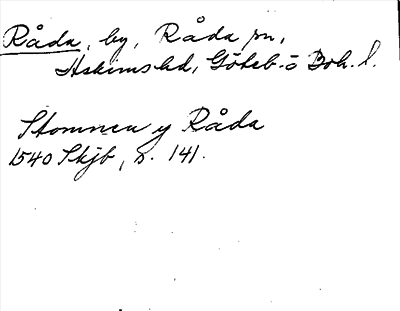 Råda, by, Råda sn,
Askims hd, Göteb. o Boh. l.
Stomnen y Råda
1540 Skjb, s. 141.